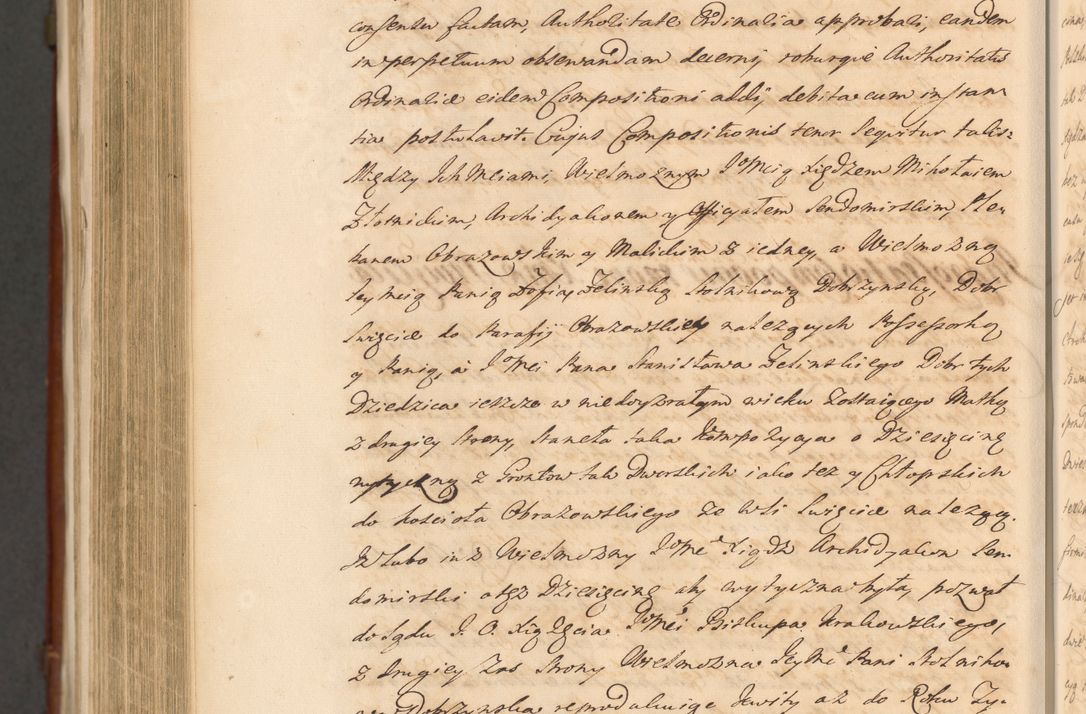 consensu factam, Authoritate Ordinaria approbari, eandem
in perpetuum observandam decerni, roburque Authoritatis
Ordinariæ eidem Compositioni addi, debita cum instan=
tia postulavit. Cujus Compositionis tenor sequitur talis:
Między Ich Mciami, Wielmoznym JoMcią Xiędzem Mikołaiem
Złotnickim, Archidyakonem y Officyałem Sendomirskim, Ple=
banem Obrazowskim y Malickim z iedney, a Wielmozną
JeyMcią Panią Zofią Zelinską Stolnikową Dobrzynską, Dobr
Święcice do Parafij Obrazowskiey nalezących Possessorką
y Panią, a JoMci Pana Stanisława Zelinskiego Dobr tych
Dziedzica ieszcze w niedoyzrałym wieku zostaiącego Matką
z drugiey strony, staneła taka Kompozycya o Dziesięcinę
wytyczną z Grontow tak Dworskich iako tez y Chłopskich
do Kościoła Obrazowskiego ze Wsi Święcice nalezącą.
Iz lubo iuz Wielmozny JoMć Xiądz Archidyakon Sen=
domirski o tęz Dziesięcinę aby wytyczna była, pozwał
do Sądu J. O. Xiązęcia JoMci Biskupa Krakowskiego,
z drugiey zas strony Wielmozna JeyMć Pani Stolniko=
wa Dobrzynska reprodukuiąc Kwity az do Roku Ty=